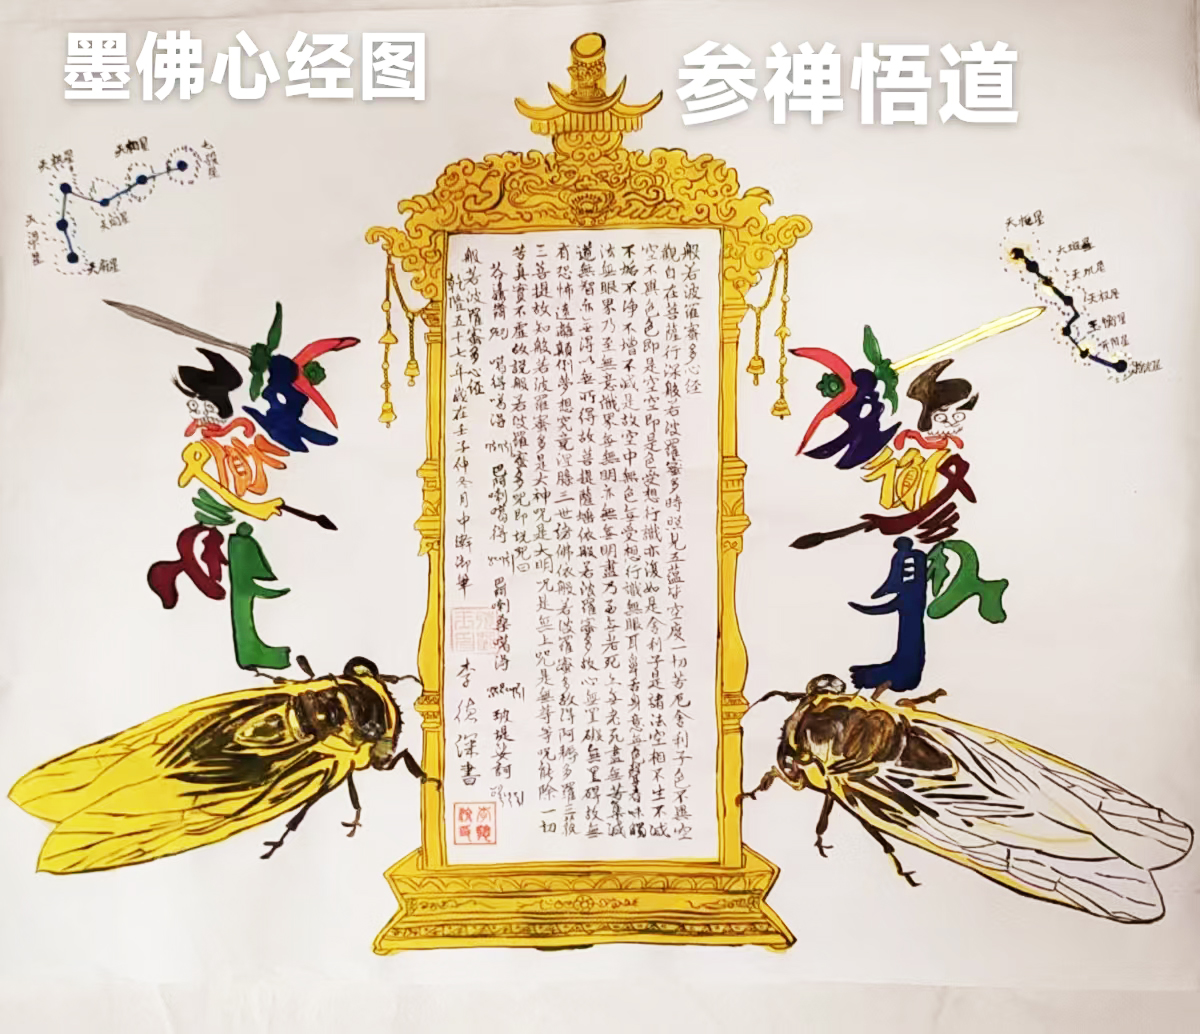 墨佛心经图
参禅悟道
天机星
天相星
七殺星
天同星
天梁星
天府星
天枢星
天璇星
天玑星
天权星
玉衡星
开阳星
般若波羅蜜多心经
觀自在菩薩行深般若波羅蜜多時照見五蕴皆空度一切苦厄舍利子色不異空
空不異色色即是空空即是色受想行識亦復如是舍利子是諸法空相不生不滅
不垢不净不增不减是故空中無色無受想行識無眼耳鼻舌身意無色聲香味觸
法無眼界乃至無意識界無無明亦無無明盡乃至無老死亦無老死盡無苦集滅
道無智亦無得以無所得故菩提薩埵依般若波羅蜜多故心無罣礙無罣碍故無
有恐怖遠離顛倒夢想究竟涅槃三世諸佛依般若波羅蜜多故得阿耨多羅三藐
三菩提故知般若波羅蜜多是大神咒是大明咒是無上咒是無等等咒能除一切
苦真實不虛故說般若波羅蜜多咒即說咒曰
噶得噶得 巴喇噶得 巴喇桑噶得 玻堤娑訶
般若波羅蜜多心经
乾隆五十七年歲在壬子仲冬月中澣御筆
李德深書